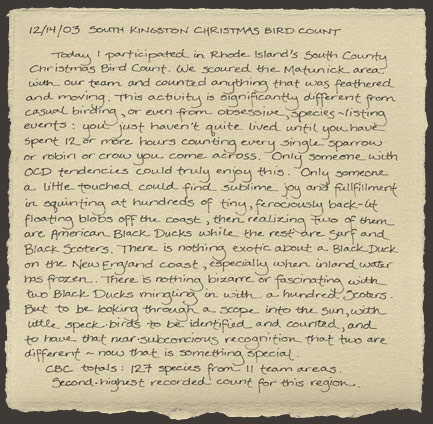 12/14/03 SOUTH KINGSTON CHRISTMAS BIRD COUNT
Today I participated in Rhode Island's South County
Christmas Bird Count. We scoured the Matunick area
with our team and counted anything that was feathered
and moving. This activity is significantly different from
casual birding, or even from obsessive, species-listing
events: you just haven't quite lived until you have
spent 12 or more hours counting every single sparrow
or robin or crow you come across. Only someone with
OCD tendencies could truly enjoy this. Only someone
a little touched could find sublime joy and fullfillment
in squinting at hundreds of tiny, ferociously back-lit
floating blobs off the coast, then realizing two of them
are American Black Ducks while the rest are Surf and
Black Scoters. There is nothing exotic about a Black Duck
on the New England coast, especially when inland water
has frozen. There is nothing bizarre or fascinating with
two Black Ducks mingling in with a hundred Scoters.
But to be looking through a scope into the sun, with
little speck-birds to be identified and counted, and
to have that near-subconcious recognition that two are
different ~ now that is something special.
CBC totals: 127 species from 11 team areas.
Second-highest recorded count for this region.